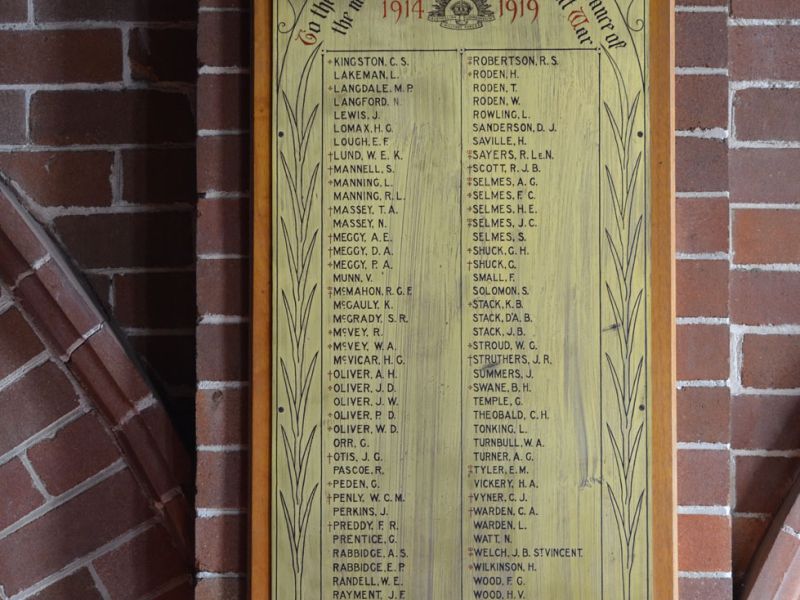 To the
the m
1914
1919
at War
ance of
*KINGSTON, C. S.
LAKEMAN, L.
*LANGDALE, M. P.
LANGFORD, N.
LEWIS, J.
LOMAX, H. G.
LOUGH, E. F.
†LUND, W. E. K.
†MANNELL, S.
*MANNING, L.
MANNING, R. L.
†MASSEY, T. A.
MASSEY, N.
†MEGGY, A. E.
†MEGGY, D. A.
*MEGGY, P. A.
MUNN, V.
‡McMAHON, R. G. F.
McGAULY, K.
McGRADY, S. R.
*McVEY, R.
*McVEY, W. A.
McVICAR, H. G.
†OLIVER, A. H.
*OLIVER, J. D.
OLIVER, J. W.
*OLIVER, P. D.
*OLIVER, W. D.
ORR, G.
†OTIS, J. G.
PASCOE, R.
*PEDEN, G.
†PENLY, W. C. M.
PERKINS, J.
†PREDDY, F. R.
PRENTICE, G.
RABBIDGE, A. S.
RABBIDGE, E. P.
RANDELL, W. E.
RAYMENT, J. F.
‡ROBERTSON, R. S.
*RODEN, H.
RODEN, T.
RODEN, W.
ROWLING, L.
SANDERSON, D. J.
SAVILLE, H.
‡SAYERS, R. LE N.
†SCOTT, R. J. B.
‡SELMES, A. G.
*SELMES, F. C.
*SELMES, H. E.
‡SELMES, J. C.
SELMES, S.
*SHUCK, G. H.
†SHUCK, G.
SMALL, F.
SOLOMON, S.
*STACK, K. B.
STACK, D'A. B.
STACK, J. B.
*STROUD, W. G.
†STRUTHERS, J. R.
SUMMERS, J.
*SWANE, B. H.
TEMPLE, G.
THEOBALD, C. H.
TONKING, L.
TURNBULL, W. A.
TURNER, A. G.
‡TYLER, E. M.
VICKERY, H. A.
†VYNER, C. J.
†WARDEN, C. A.
WARDEN, L.
WATT, N.
‡WELCH, J. B. ST VINCENT.
*WILKINSON, H.
WOOD, F. G.
WOOD, H. V.